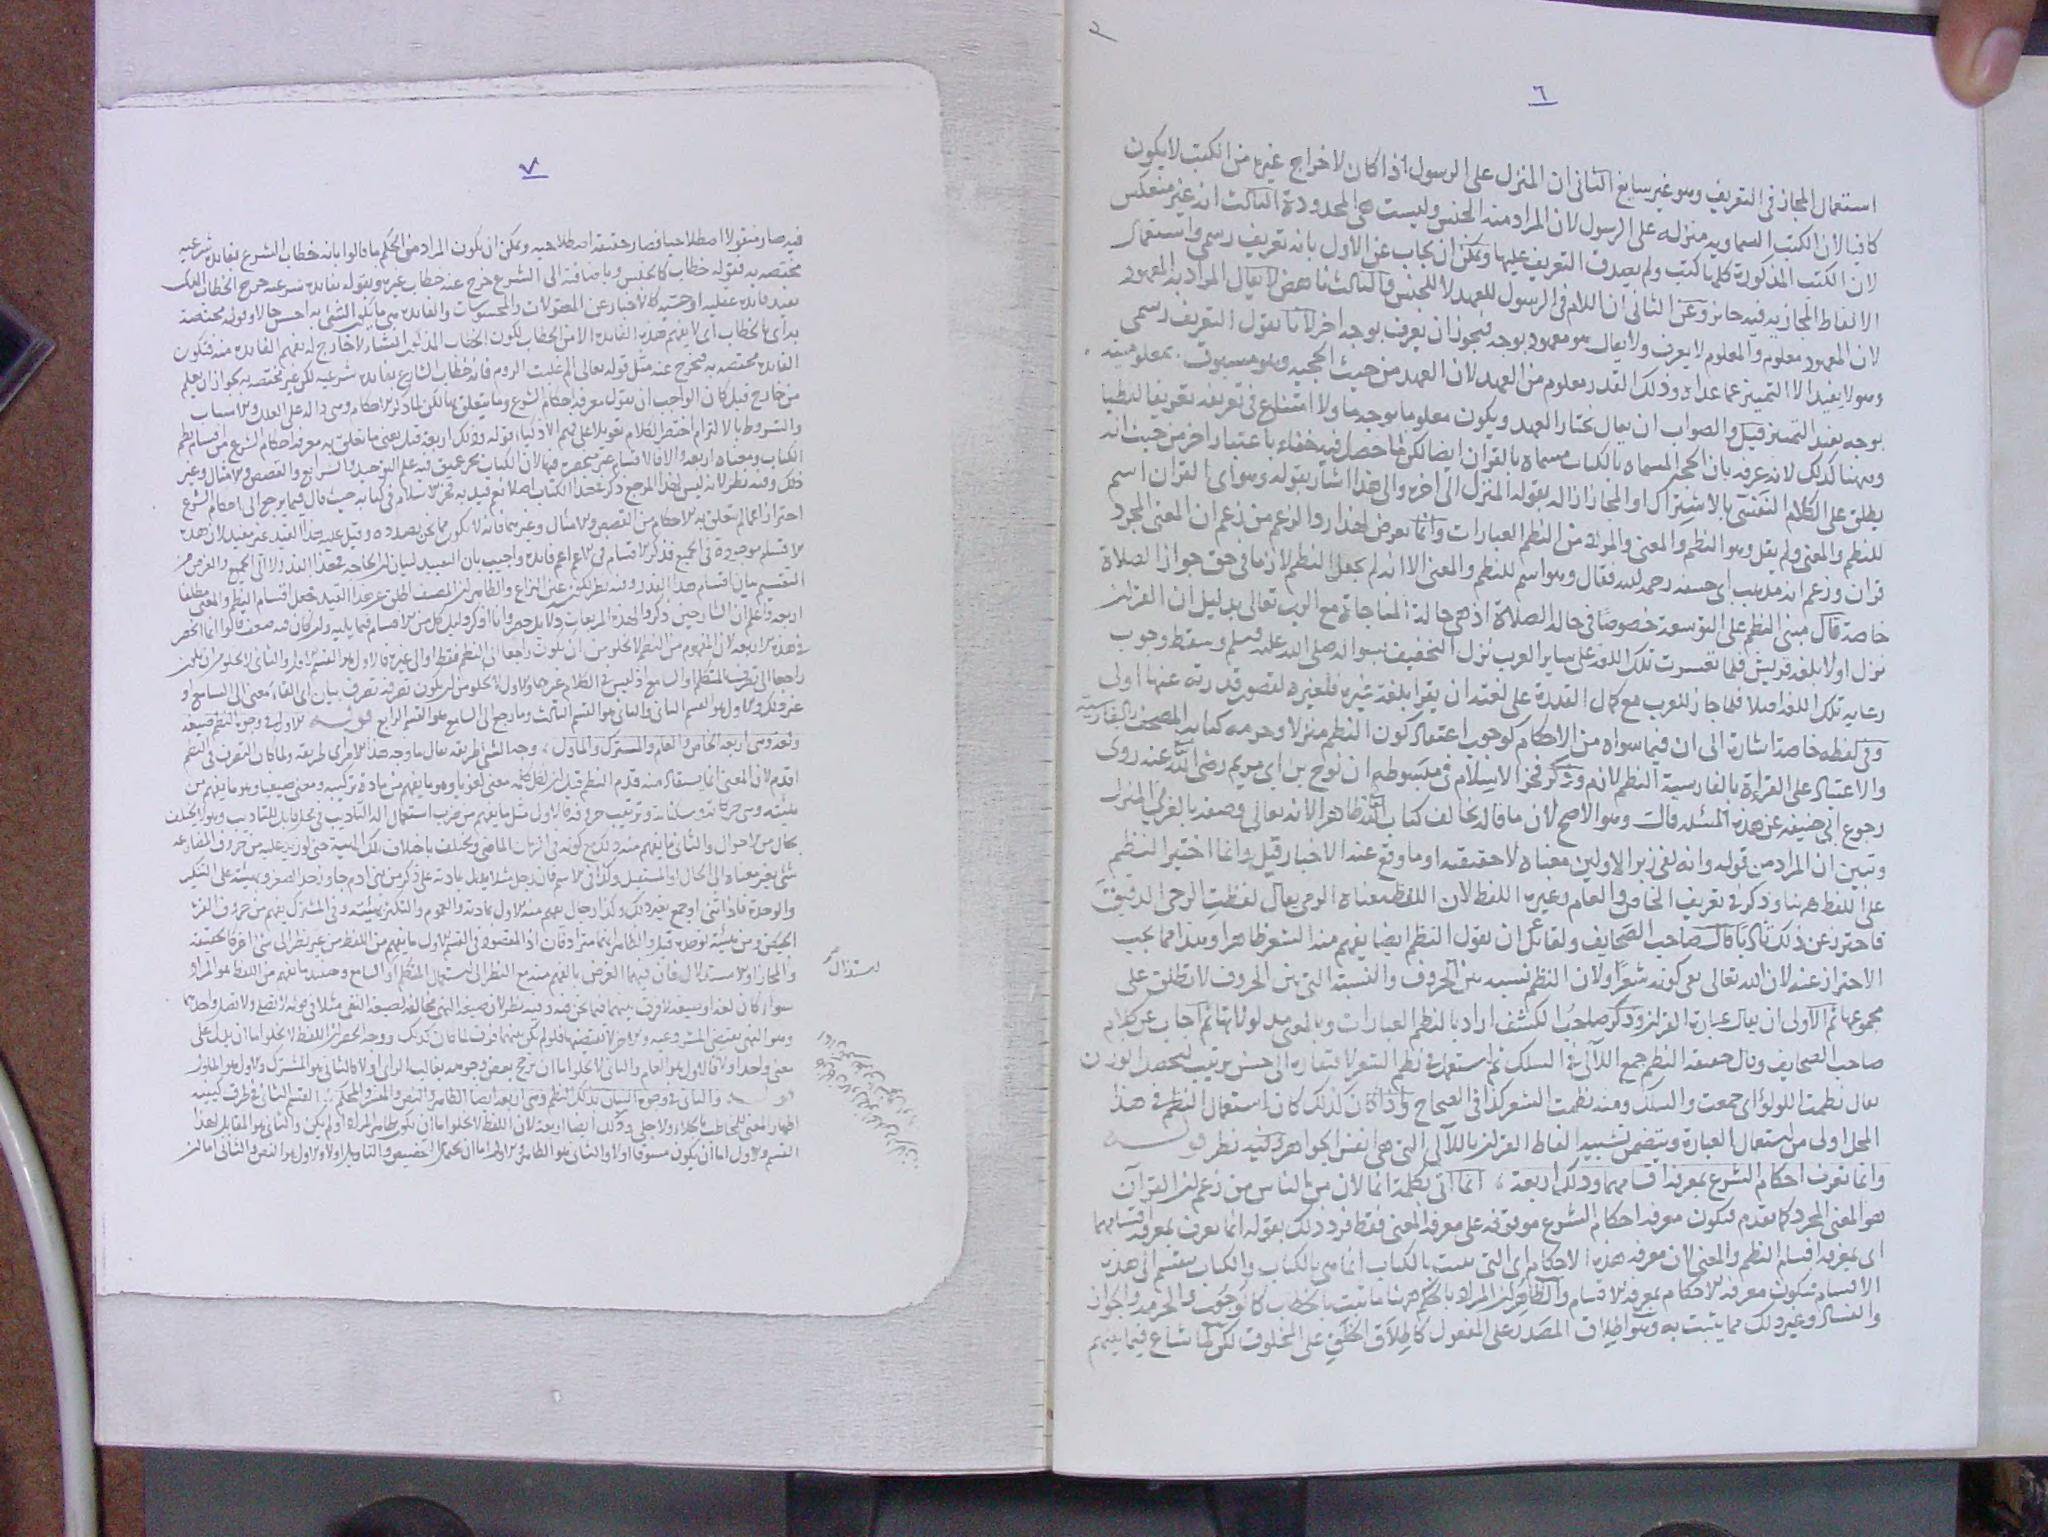 ٢
٦
استعمال المجاز فى التعريف وهو غير سايغ الثانى ان المنزل على الرسول اذا كان لاخراج غيره من الكتب لا يكون
كافيا لان الكتب السماوية منزله على الرسول لان المراد منه الجنس وليست هى المحدودة الثالث انه غير منعكس
لان الكتب المذكورة كلها كتب ولم يصدق التعريف عليها ويمكن ان يجاب عن الاول بانه تعريف رسمى واستعمال
الالفاظ المجازية فيه جايز وعن الثانى ان اللام فى الرسول للعهد لا للجنس والثالث ناهض لا يقال المراد به المعهود
لان المعهود معلوم والمعلوم لا يعرف ولا يقال هو معهود بوجه فيجوز ان يعرف بوجه اخر لانا نقول التعريف رسمى
وهو لا يفيد الا التمييز عما عداه وذلك القدر معلوم من العهد لان العهد من حيث الحجيه وهو مسبوق بمعلوميته
بوجه يفيد التمييز قيل والصواب ان يقال نختار العهد ويكون معلوما بوجه ما ولا امتناع فى تعريفه تعريفا لفظيا
وههنا كذلك لانه عرفه بان الحجج المسماه بالكتاب مسماه بالقرآن ايضا لكن لما حصل فيه خفاء باعتبار اخر من حيث انه
يطلق على الكلام النفسى بالاشتراك او المجاز ازاله بقوله المنزل الى اخره والى هذا اشار بقوله وهو اى القران اسم
للنظم والمعنى ولم يقل وهو النظم والمعنى والمراد من النظم العبارات وانما تعرض لهذا رد الزعم من زعم ان المعنى المجرد
قران وزعم انه مذهب ابى حنيفه رحمه الله فقال وهو اسم للنظم والمعنى الا انه لم يجعل النظم لازما فى حق جواز الصلاة
خاصة قال مبنى النظم على التوسعة خصوصا فى حالة الصلاة اذ هى حالة المناجاة مع الرب تعالى بدليل ان القران
نزل اولا بلغة قريش فلما تعسرت تلك اللغة على ساير العرب نزل التخفيف بسواله صلى الله عليه وسلم وسقط وجوب
رعاية تلك اللغة اصلا فلما جاز للعرب مع كمال القدرة على لغته ان يقرا بلغة غيره فلغيره لقصور قدرته عنها اولى
وفى لفظه خاصة اشارة الى ان فيما سواه من الاحكام كوجوب اعتقاد كون النظم منزلا وحرمه كتابة المصحف بالفارسية
والاعتياد على القراءة بالفارسية النظم لازم وذكر فخر الاسلام فى مبسوطه ان نوح بن ابى مريم رضى الله عنه روى
رجوع ابى حنيفه عن هذه المسئله قال وهو الاصح لان ما قاله يخالف كتاب الله ظاهرا لانه تعالى وصفه بالعربى المنزل
وتبين ان المراد من قوله وانه لفى زبر الاولين معناه لا حقيقته او ما وقع عنه الاخبار قيل وانما اختير النظم
على اللفظ ههنا وذكر فى تعريف الخاص والعام وغيره اللفظ لان اللفظ معناه الرمى يقال لفظت الرحى الدقيق
فاحترز عن ذلك تادبا قال صاحب الصحايف ولقائل ان يقول النظم ايضا يفهم منه الشعر ظاهرا وهذا مما يجب
الاحتراز عنه لان الله تعالى نفى كونه شعرا ولان النظم نسبه بين الحروف والنسبة التى بين الحروف لا تطلق على
مجموعها ثم الاولى ان يقال عبارة القران وذكر صاحب الكشف اراد بالنظم العبارات وبالمعنى مدلولاتها ثم اجاب عن كلام
صاحب الصحايف وقال حقيقة النظم جمع اللآلى فى السلك ثم استعمل فى نظم الشعر لافتقاره الى حسن ترتيب لتحصل الوزن
يقال نظمت اللولؤ اى جمعت والسلك ومنه نظمت الشعر كذا فى الصحاح واذا كان كذلك كان استعمال النظم فى هذا
المحل اولى من استعمال العبارة ويتضمن تشبيه الفاظ القران باللآلى التى هى انفس الجواهر وفيه نظر قوله
وانما تعرف احكام الشرع بمعرفة اقسامهما وذلك اربعة ، انما اتى بكلمة انما لان من الناس من زعم ان القرآن
هو المعنى المجرد كما تقدم فتكون معرفة احكام الشرع موقوفه على معرفة المعنى فقط فرد ذلك بقوله انما تعرف بمعرفة اقسامهما
اى بمعرفة اقسام النظم والمعنى لان معرفه هذه الاحكام اى التى تثبت بالكتاب انما هى بالكتاب والكتاب ينقسم الى هذه
الاقسام فتكون معرفة الاحكام بمعرفة الاقسام والظاهر ان المراد بالحكم ههنا ما ثبت بالخطاب كالوجوب والحرمه والجواز
والفساد وغير ذلك مما يثبت به وهو اطلاق المصدر على المفعول كاطلاق الخلق على المخلوق لكن لما شاع فيما بينهم
٧
فيه صار منقولا اصطلاحيا فصار حقيقة اصطلاحيه ويمكن ان يكون المراد من الحكم ما قالوا بانه خطاب الشرع بفائدة شرعيه
مختصه به فقوله خطاب كالجنس وباضافته الى الشرع خرج عنه خطاب غيره وبقوله بفائدة شرعيه خرج الخطاب الذى
يفيد فايدة عقليه او حسيه كالاخبار عن المعقولات والمحسوسات والفايده هى ما يكون الشئ به احسن حالا وقوله مختصه
به اى بالخطاب اى لا يفهم هذه الفائدة الا من الخطاب لكون الخطاب المذكور انشاء لا خارج له يفهم الفائدة منه فتكون
الفائدة مختصه به فخرج عنه مثل قوله تعالى الم غلبت الروم فانه خطاب الشارع بفائدة شرعيه لكن غير مختصه به بجواز ان يعلم
من خارج قيل كان الواجب ان يقول معرفة احكام الشرع وما يتعلق بها لكن لما ذكر الاحكام وهى دالة على العلل والاسباب
والشروط بالالتزام اختصر الكلام تعويلا على فهم الاذكياء قوله وذلك اربعة قيل يعنى ما تعلق به معرفة احكام الشرع من اقسام نظم
الكتاب ومعناه اربعه والا فالاقسام غير منحصرة فيها لان الكتاب بحر عميق فيه علم التوحيد والشرايع والقصص والامثال وغير
ذلك وفيه نظر لانه ليس لهذا المرجع ذكر فى هذا الكتاب اصلا نعم قيد به فخر الاسلام فى كتابه حيث قال فيما يرجع الى احكام الشرع
احترازا عما لم تتعلق به الاحكام من القصص والامثال وغيرهما فانه لا يكون مما نحن بصدده وقيل عليه هذا القيد غير مفيد لان هذه
الاقسام موجودة فى الجميع فذكر الاقسام فى الاعم اعم فايدة واجيب بان التقييد لبيان ان الحاجة فى هذا القدر لا الى الجميع والغرض من
التقسيم بيان اقسام هذا القدر وفيه نظر لكونه عين النزاع والظاهر ان المصنف اطلق عن هذا القيد فجعل اقسام النظم والمعنى مطلقا
اربعه واعلم ان الشارحين ذكروا لهذه المربعات دلايل حصر وانا اذكر دليل كل من الاقسام فيما يليه وان كان فيه ضعف قالوا انما انحصر
فى هذه الاربعة لان المفهوم من النظم لا يخلو من ان يكون راجعا الى النظم فقط او الى غيره فالاول هو القسم الاول والثانى لا يخلو من ان يكون
راجعا الى تصرف المتكلم او السامع اذ ليس فى الكلام غيرهما والاول لا يخلو من ان يكون تصرفه تصرف بيان اى القاء معنى الى السامع او
غير ذلك والاول هو القسم الثانى والثانى هو القسم الثالث وما رجع الى السامع هو القسم الرابع قوله الاول فى وجوه النظم صيغة
ولغة وهى اربعة الخاص والعام والمشترك والماول ، وجه الشئ طريقه يقال ما وجه هذا الامر اى طريقه ولما كان التصرف فى النظم
اقدم لان المعنى انما يستفاد منه قدم النظم قيل ان لكل كلمة معنى لغويا وهو ما يفهم من مادة تركيبه ومعنى صيغيا وهو ما يفهم من
هيئته وهى حركاته وسكناته وترتيب حروفه فالاول مثل ما يفهم من ضرب استعمال الة التاديب فى محل قابل للتاديب وهو لا يختلف
بحال من الاحوال والثانى ما يفهم منه ذلك مع كونه فى الزمان الماضى ويختلف باختلاف تلك الهيئة حتى لو زيد عليه من حروف المضارعه
شئ يتغير معناه الى الحال او المستقبل وكذا فى الاسم فان رجل مثلا يدل بمادته على ذكر من بنى ادم جاوز حد الصغر وبهيئته على التنكير
والوحدة فاذا ثنى او جمع تغير ذلك وكذا رجال يفهم منه الاول بمادته والعموم والتنكير بهيئته وفى المشترك يفهم من حروف القرء
الحيض ومن هيئته الوحدة قيل والظاهر انهما مترادفان اذ المقصود فى القسم الاول ما يفهم من اللفظ من غير نظر الى شئ اخر كالحقيقة
والمجاز او الاستدلال فان فيهما الغرض ما يفهم منه مع النظر الى استعمال المتكلم او السامع وحينئذ ما يفهم من اللفظ هو المراد
سواء كان لغة او صيغة لا فرق بينهما فيما نحن فيه وفيه نظر لان صيغة النهى مخالفة لصيغة النفى مثلا فى قوله لا تصل ولا تصل واحدهما
وهو النفى يقتضى المشروعيه والاخر لا يقتضيها فلو لم يكن بينهما فرق لما كان كذلك ووجه الحصر ان اللفظ لا يخلو اما ان يدل على
معنى واحد اولا فالاول هو الخاص والثانى لا يخلو اما ان ترجح بعض وجوهه بغالب الراى اولا فالثانى هو المشترك والاول هو الماول
قوله والثانى فى وجوه البيان بذلك النظم وهى اربعة ايضا الظاهر والنص والمفسر والمحكم ، القسم الثانى فى طرق كيفيه
اظهار المعنى للمخاطب جلاء اولا جلى وذلك ايضا اربعة لان اللفظ لا يخلو اما ان يكون ظاهر المراد او لم يكن والثانى هو المقابل لهذا
القسم والاول اما ان يكون مسوقا اولا والثانى هو الظاهر والاول اما ان يحتمل التخصيص والتاويل اولا والاول هو النص والثانى اما ان
استدلال